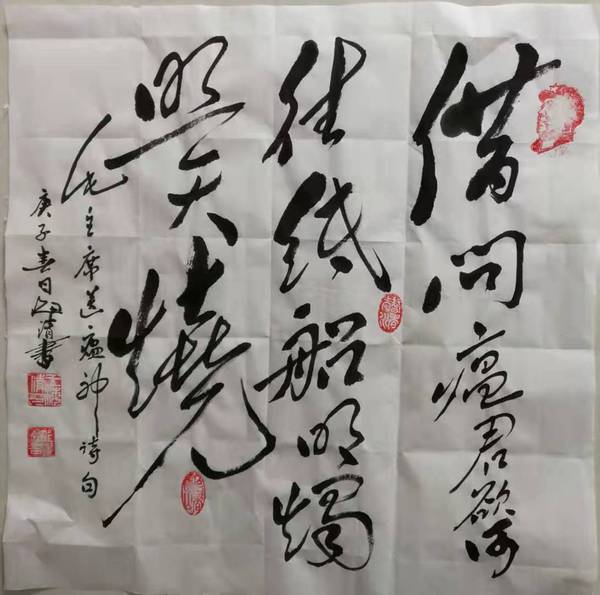 借問瘟君欲何
往纸船明燭
照天燒
毛主席送瘟神诗句
庚子春日清書